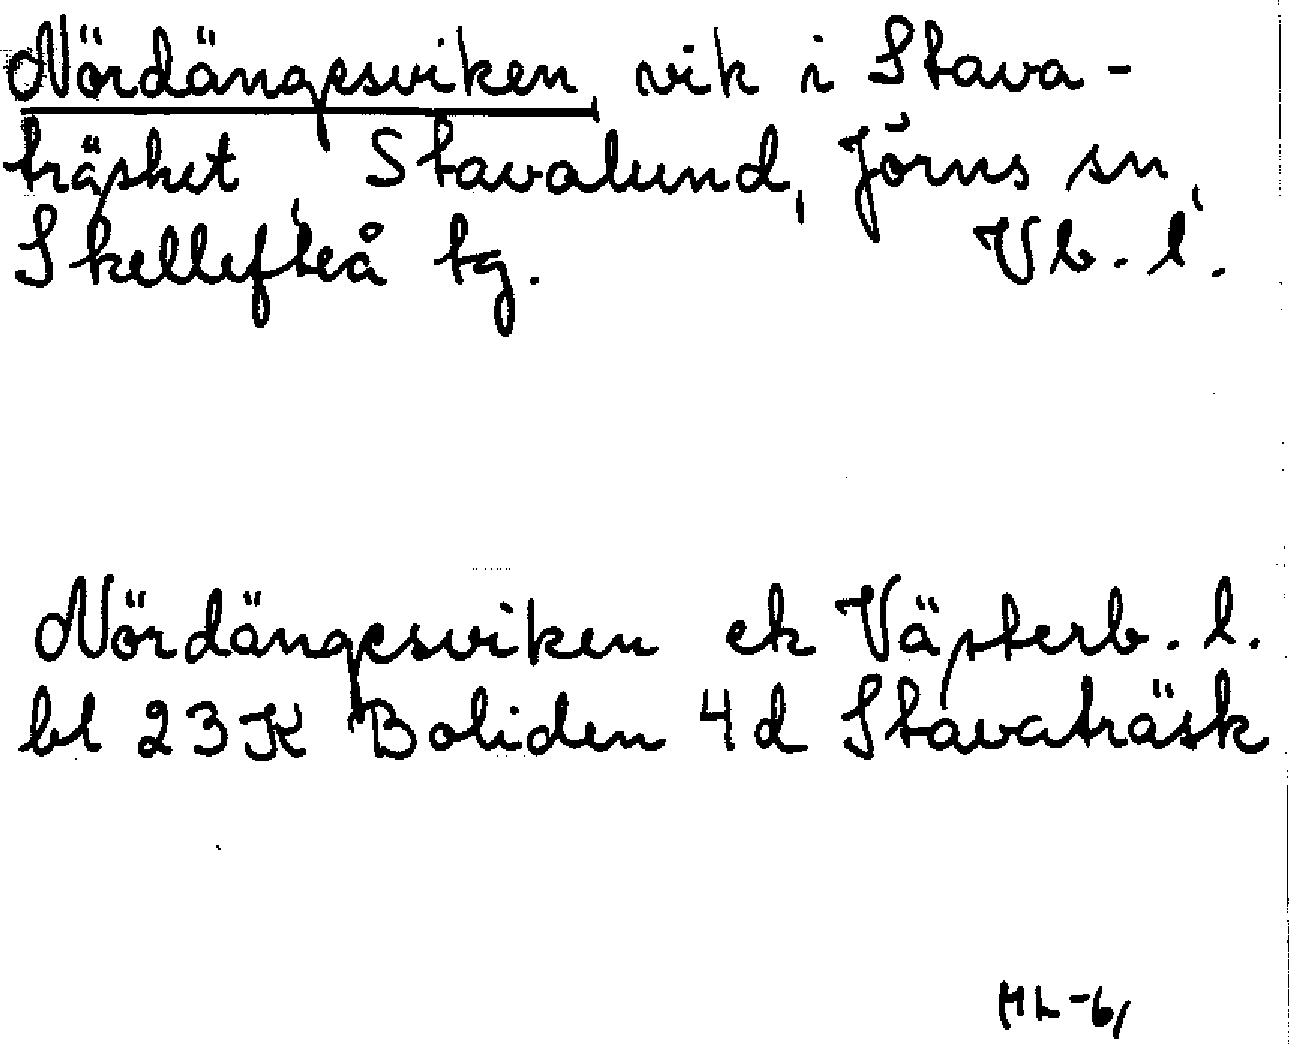 Nördängesviken, vik i Stava-
träsket, Stavalund, Jörns sn,
Skellefteå tg. Vb. l.
Nördängesviken ek Västerb. l.
bl 23K Boliden 4d Stavaträsk